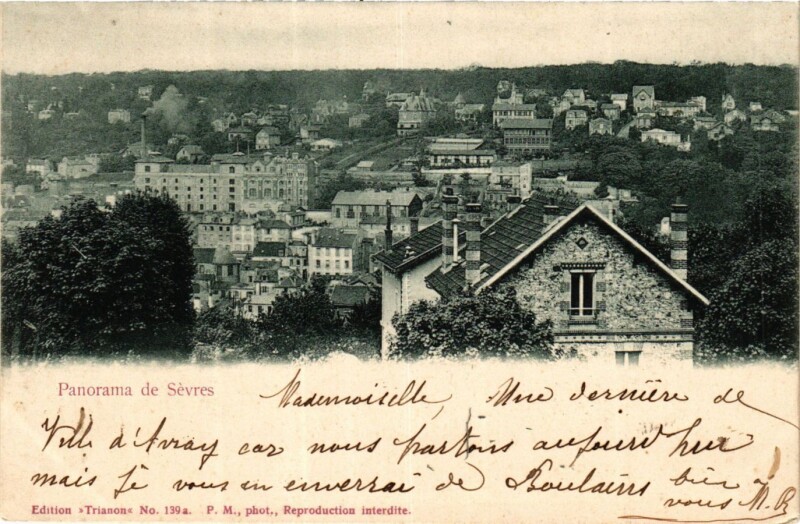 Panorama de Sèvres
Mademoiselle, Une dernière de
Ville d'Avray car nous partons aujourd'hui
mais je vous en enverrai de Boulains bien à
vous M. R
Edition »Trianon« No. 139a. P. M., phot., Reproduction interdite.